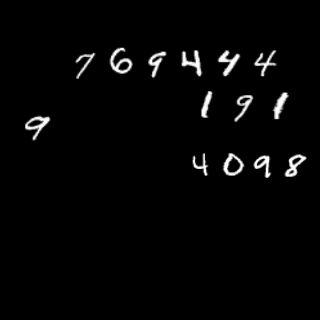 769444
191
9
4098